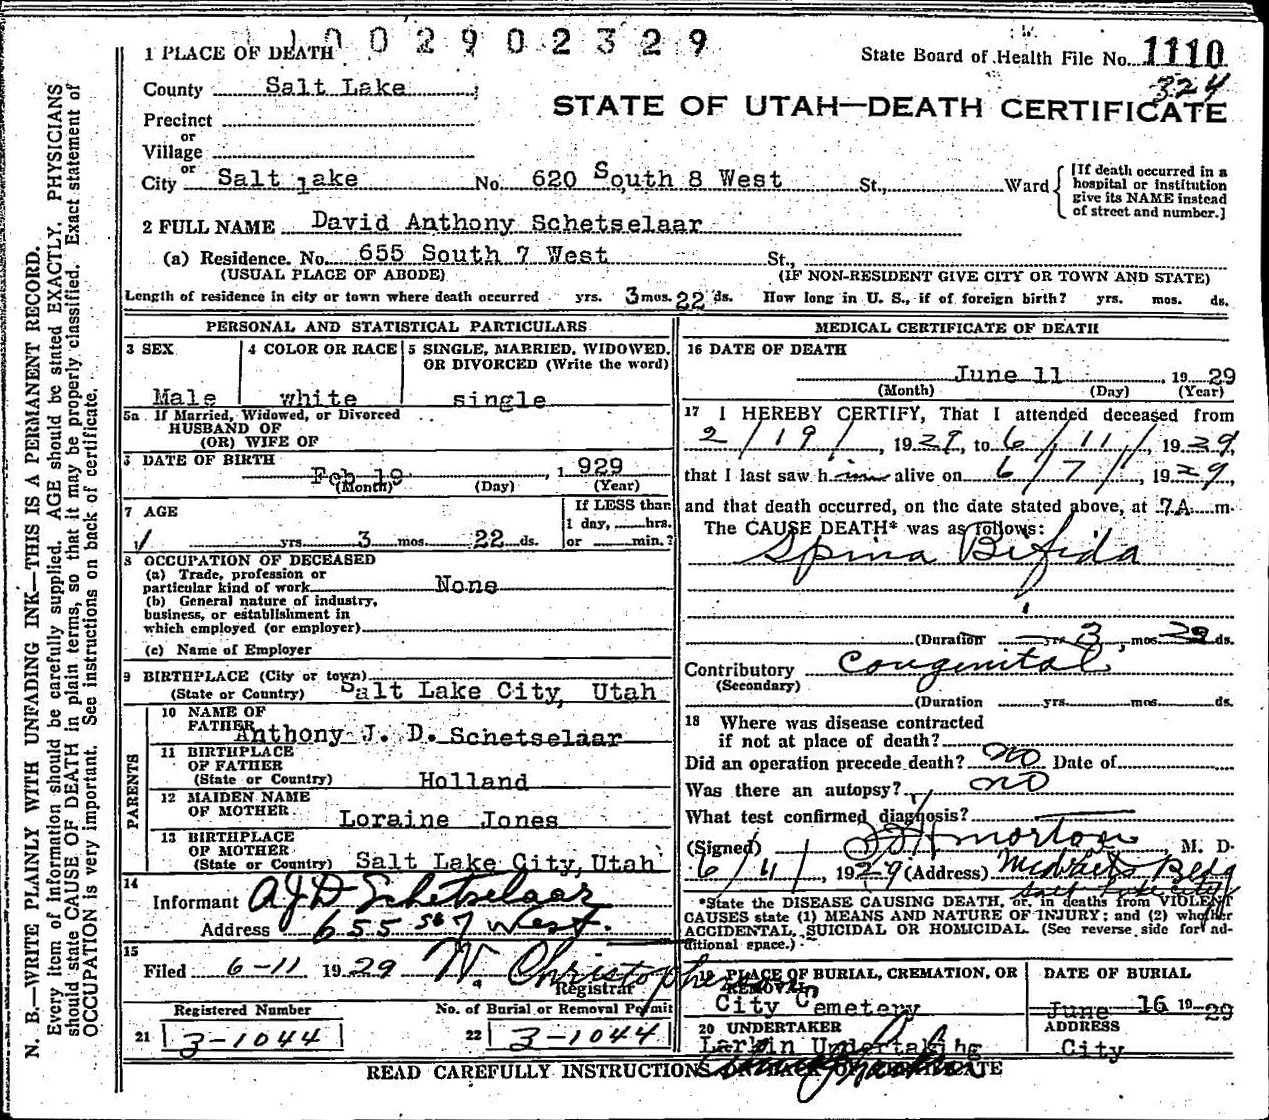 1002902329
1 PLACE OF DEATH
State Board of Health File No. 1110
324
County Salt Lake
STATE OF UTAH—DEATH CERTIFICATE
Precinct
or
Village
or
City Salt Lake No. 620 South 8 West St., Ward
[If death occurred in a
hospital or institution
give its NAME instead
of street and number.]
2 FULL NAME David Anthony Schetselaar
(a) Residence. No. 655 South 7 West St.,
(USUAL PLACE OF ABODE) (IF NON-RESIDENT GIVE CITY OR TOWN AND STATE)
Length of residence in city or town where death occurred yrs. 3 mos. 22 ds. How long in U. S., if of foreign birth? yrs. mos. ds.
PERSONAL AND STATISTICAL PARTICULARS
3 SEX 4 COLOR OR RACE 5 SINGLE, MARRIED, WIDOWED,
OR DIVORCED (Write the word)
Male white single
5a If Married, Widowed, or Divorced
HUSBAND OF
(OR) WIFE OF
DATE OF BIRTH
Feb 19, 1929
(Month) (Day) (Year)
7 AGE If LESS than
1 day, hrs.
yrs. 3 mos. 22 ds. or min.?
8 OCCUPATION OF DECEASED
(a) Trade, profession or
particular kind of work None
(b) General nature of industry,
business, or establishment in
which employed (or employer)
(c) Name of Employer
9 BIRTHPLACE (City or town)
(State or Country) Salt Lake City, Utah
PARENTS
10 NAME OF
FATHER Anthony J. D. Schetselaar
11 BIRTHPLACE
OF FATHER
(State or Country) Holland
12 MAIDEN NAME
OF MOTHER Loraine Jones
13 BIRTHPLACE
OF MOTHER
(State or Country) Salt Lake City, Utah
14
Informant AJD Schetselaar
Address 655 So 7 West.
15
Filed 6-11 1929 W. Christophers
Registrar
Registered Number No. of Burial or Removal Permit
21 3-1044 22 3-1044
MEDICAL CERTIFICATE OF DEATH
16 DATE OF DEATH
June 11, 1929
(Month) (Day) (Year)
17 I HEREBY CERTIFY, That I attended deceased from
2/19/, 1929, to 6/11/, 1929,
that I last saw him alive on 6/7/, 1929,
and that death occurred, on the date stated above, at 7A m.
The CAUSE DEATH* was as follows:
Spina Bifida
(Duration yrs 3 mos 22 ds.
Contributory Congenital
(Secondary)
(Duration yrs. mos. ds.
18 Where was disease contracted
if not at place of death?
Did an operation precede death? no Date of
Was there an autopsy? no
What test confirmed diagnosis?
(Signed) Morton M. D.
6/11/, 1929 (Address) McIntyre Bldg
Salt Lake City
*State the DISEASE CAUSING DEATH, or, in deaths from VIOLENT
CAUSES state (1) MEANS AND NATURE OF INJURY; and (2) whether
ACCIDENTAL, SUICIDAL OR HOMICIDAL. (See reverse side for ad-
ditional space.)
19 PLACE OF BURIAL, CREMATION, OR
REMOVAL
City Cemetery
DATE OF BURIAL
June 16 1929
20 UNDERTAKER
Larkin Undertaking
ADDRESS
City
READ CAREFULLY INSTRUCTIONS ON BACK OF CERTIFICATE
N. B.—WRITE PLAINLY WITH UNFADING INK—THIS IS A PERMANENT RECORD.
Every item of information should be carefully supplied. AGE should be stated EXACTLY. PHYSICIANS
should state CAUSE OF DEATH in plain terms, so that it may be properly classified. Exact statement of
OCCUPATION is very important. See instructions on back of certificate.